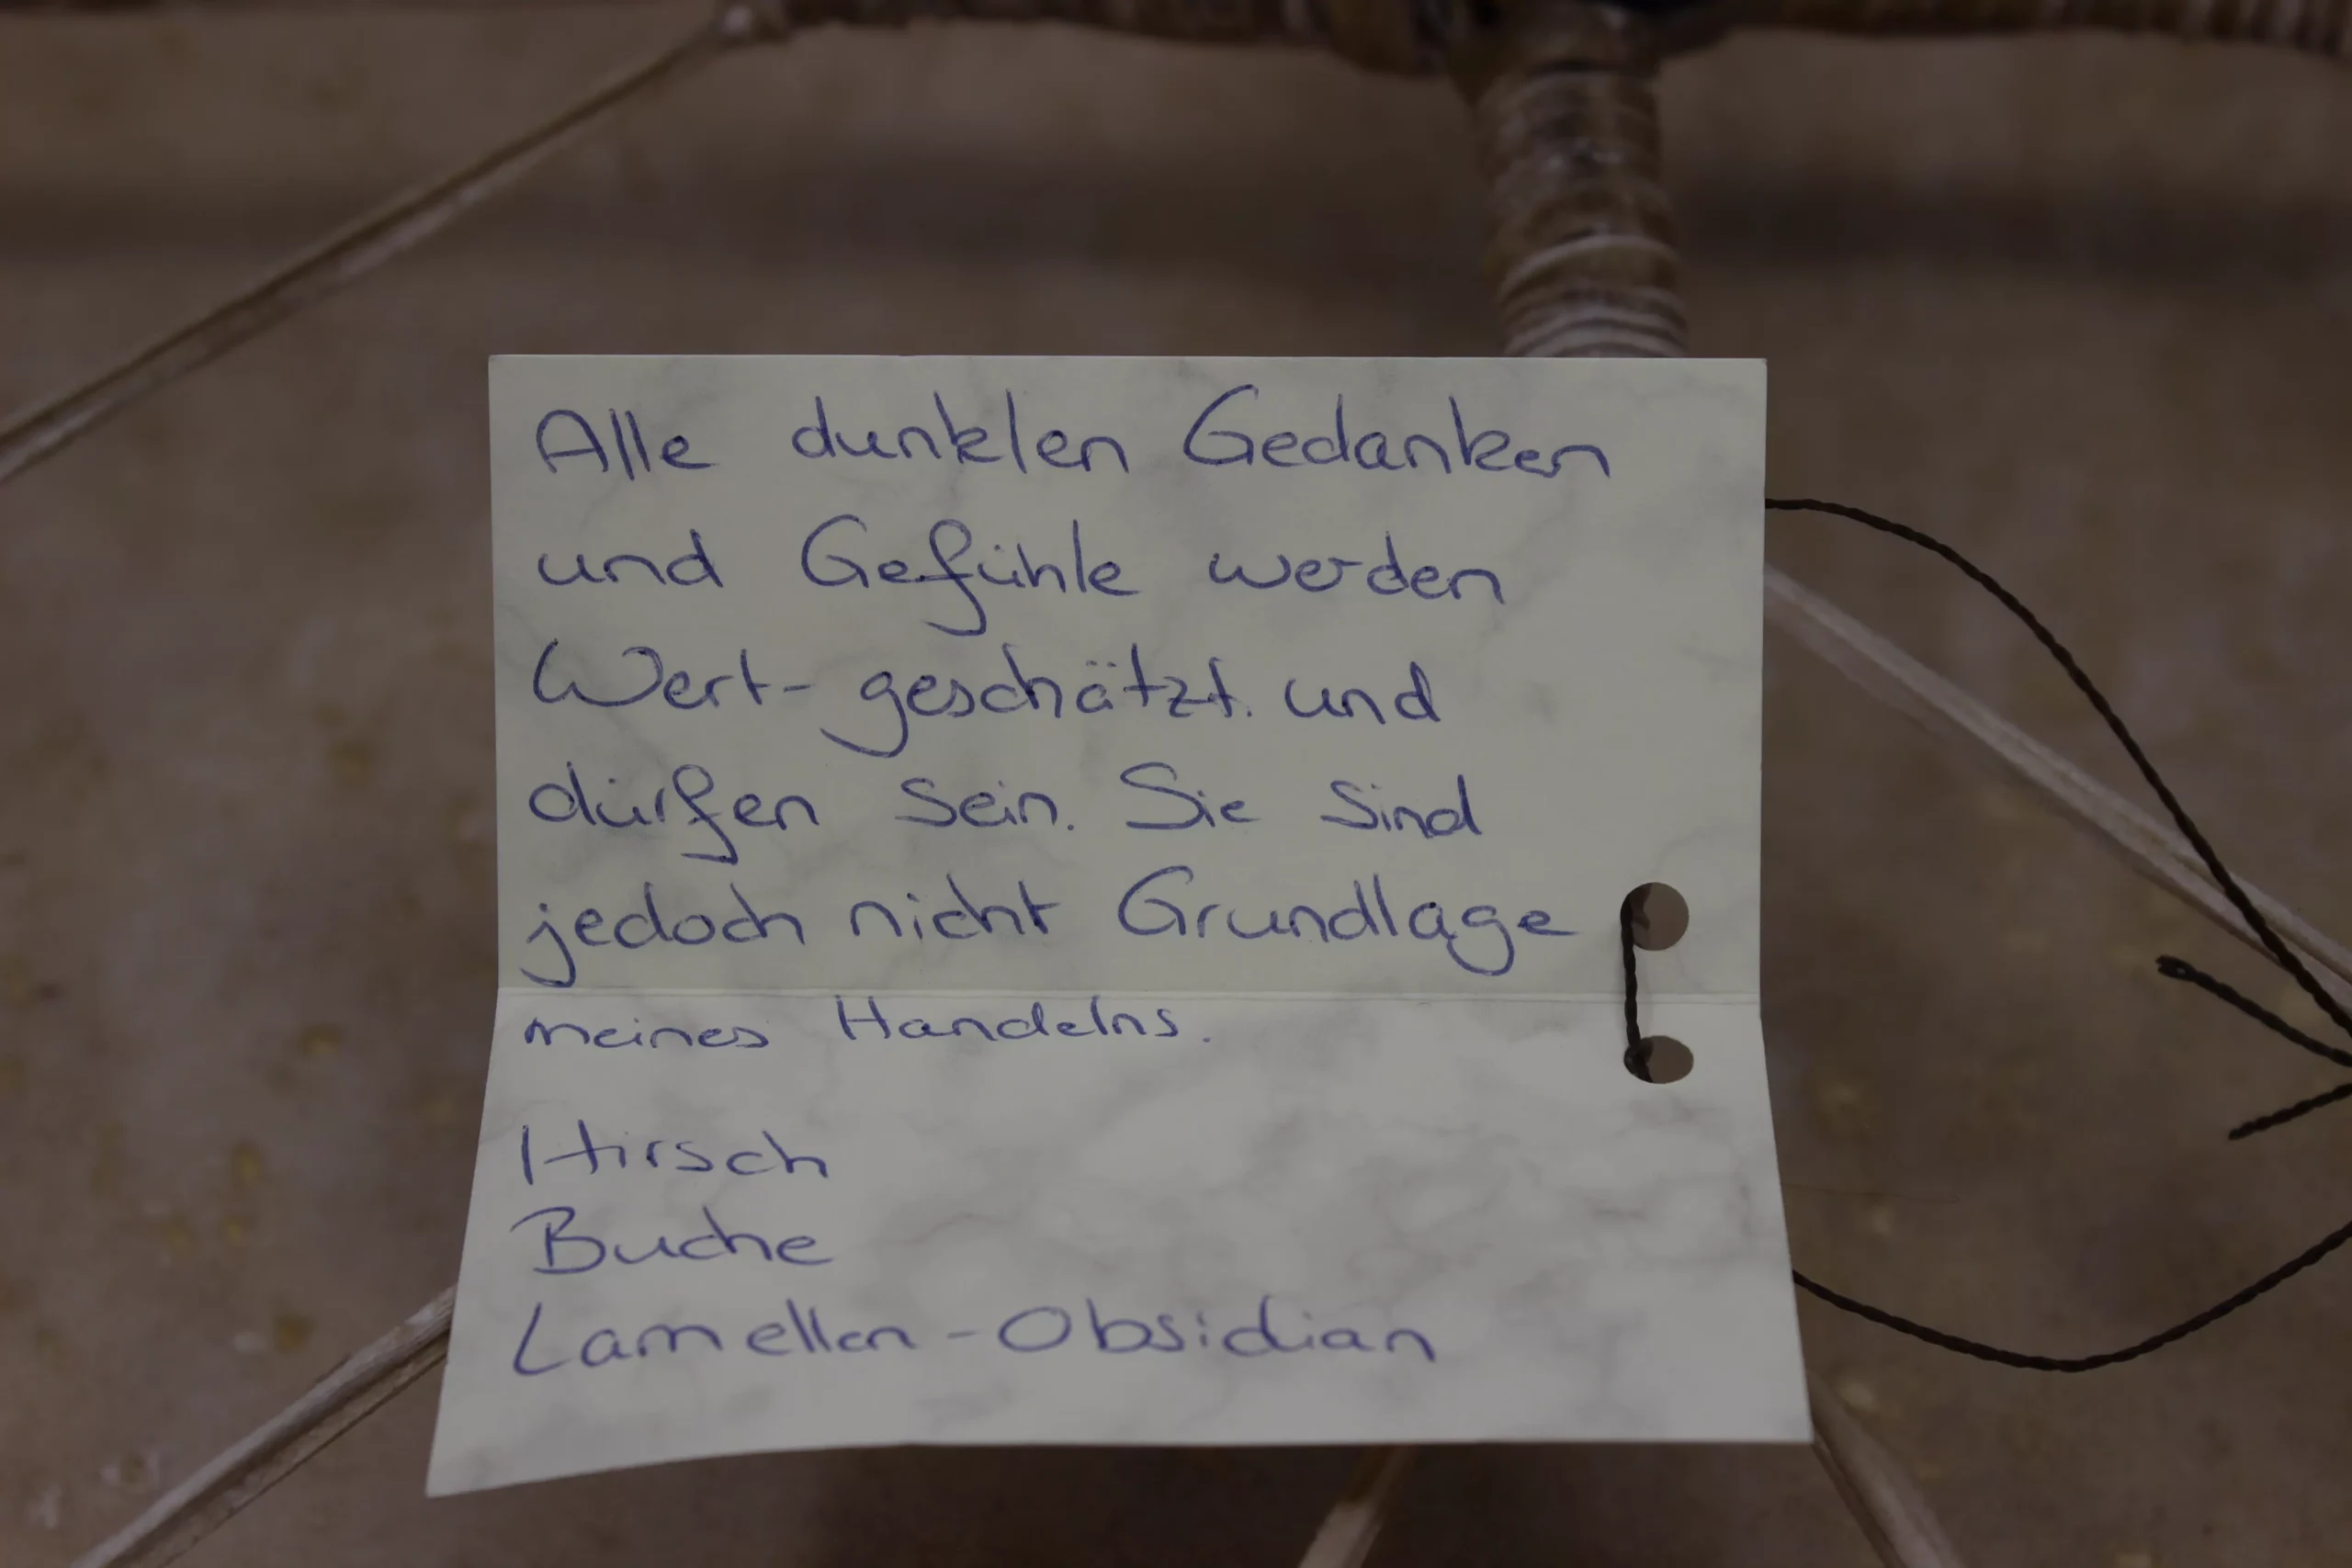 Alle dunklen Gedanken
und Gefühle werden
Wert-geschätzt. und
dürfen sein. Sie sind
jedoch nicht Grundlage
meines Handelns.
Hirsch
Buche
Lamellen-Obsidian